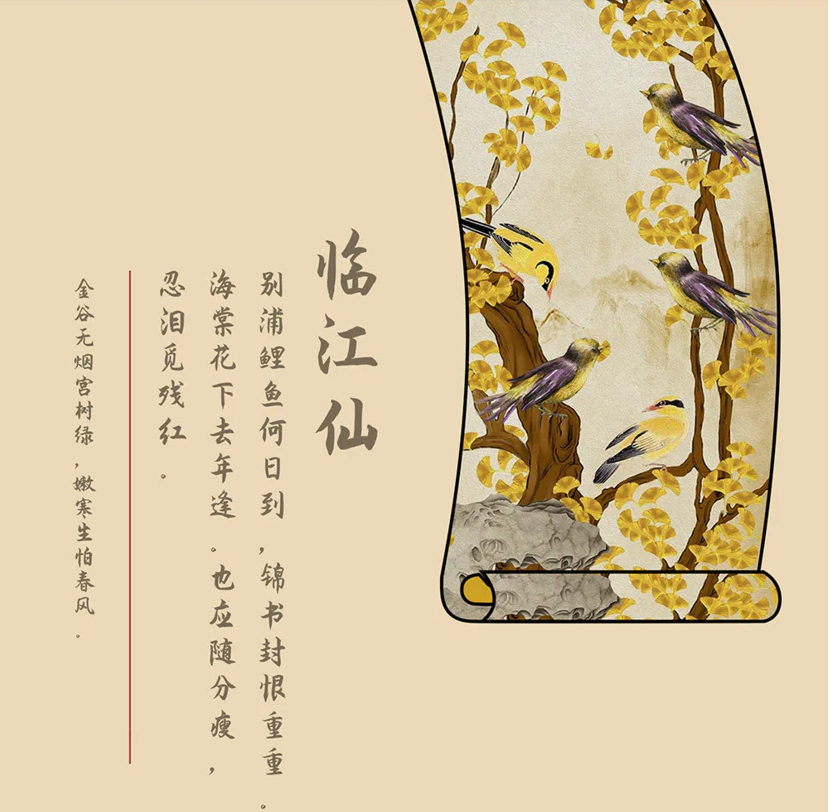 临江仙
别浦鲤鱼何日到，锦书封恨重重。
海棠花下去年逢。也应随分瘦，
忍泪觅残红.
金谷无烟宫树绿，嫩寒生怕春风.